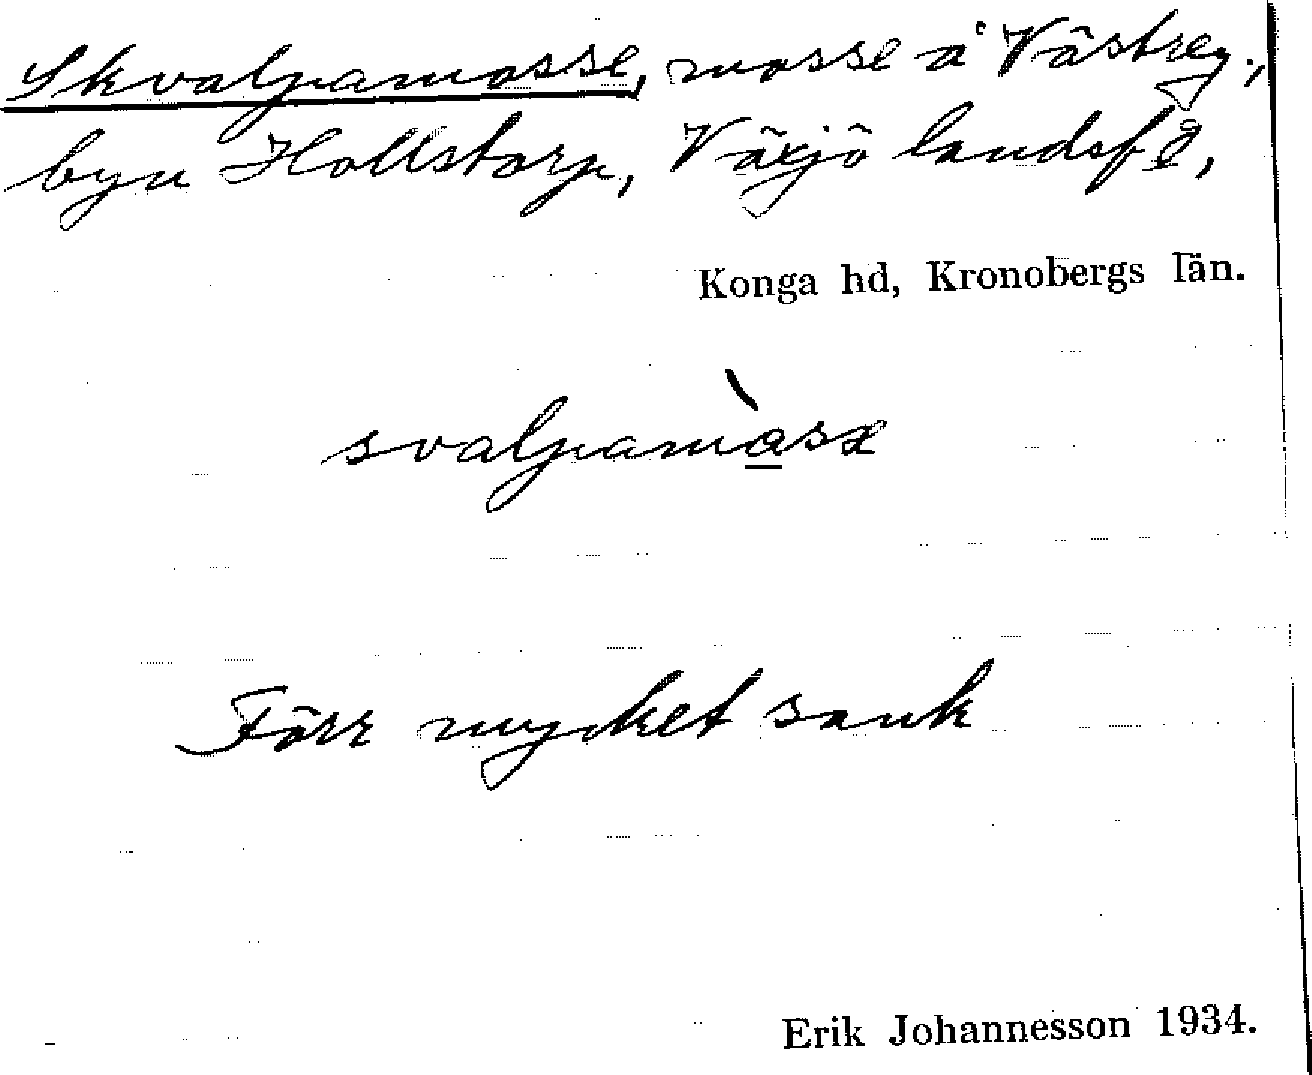 Skvalpamosse, mosse å Västreg.,
byn Hollstorp, Växjö landsf̊g,
Konga hd, Kronobergs län.
svalpamàsə
Förr mycket sank
Erik Johannesson 1934.